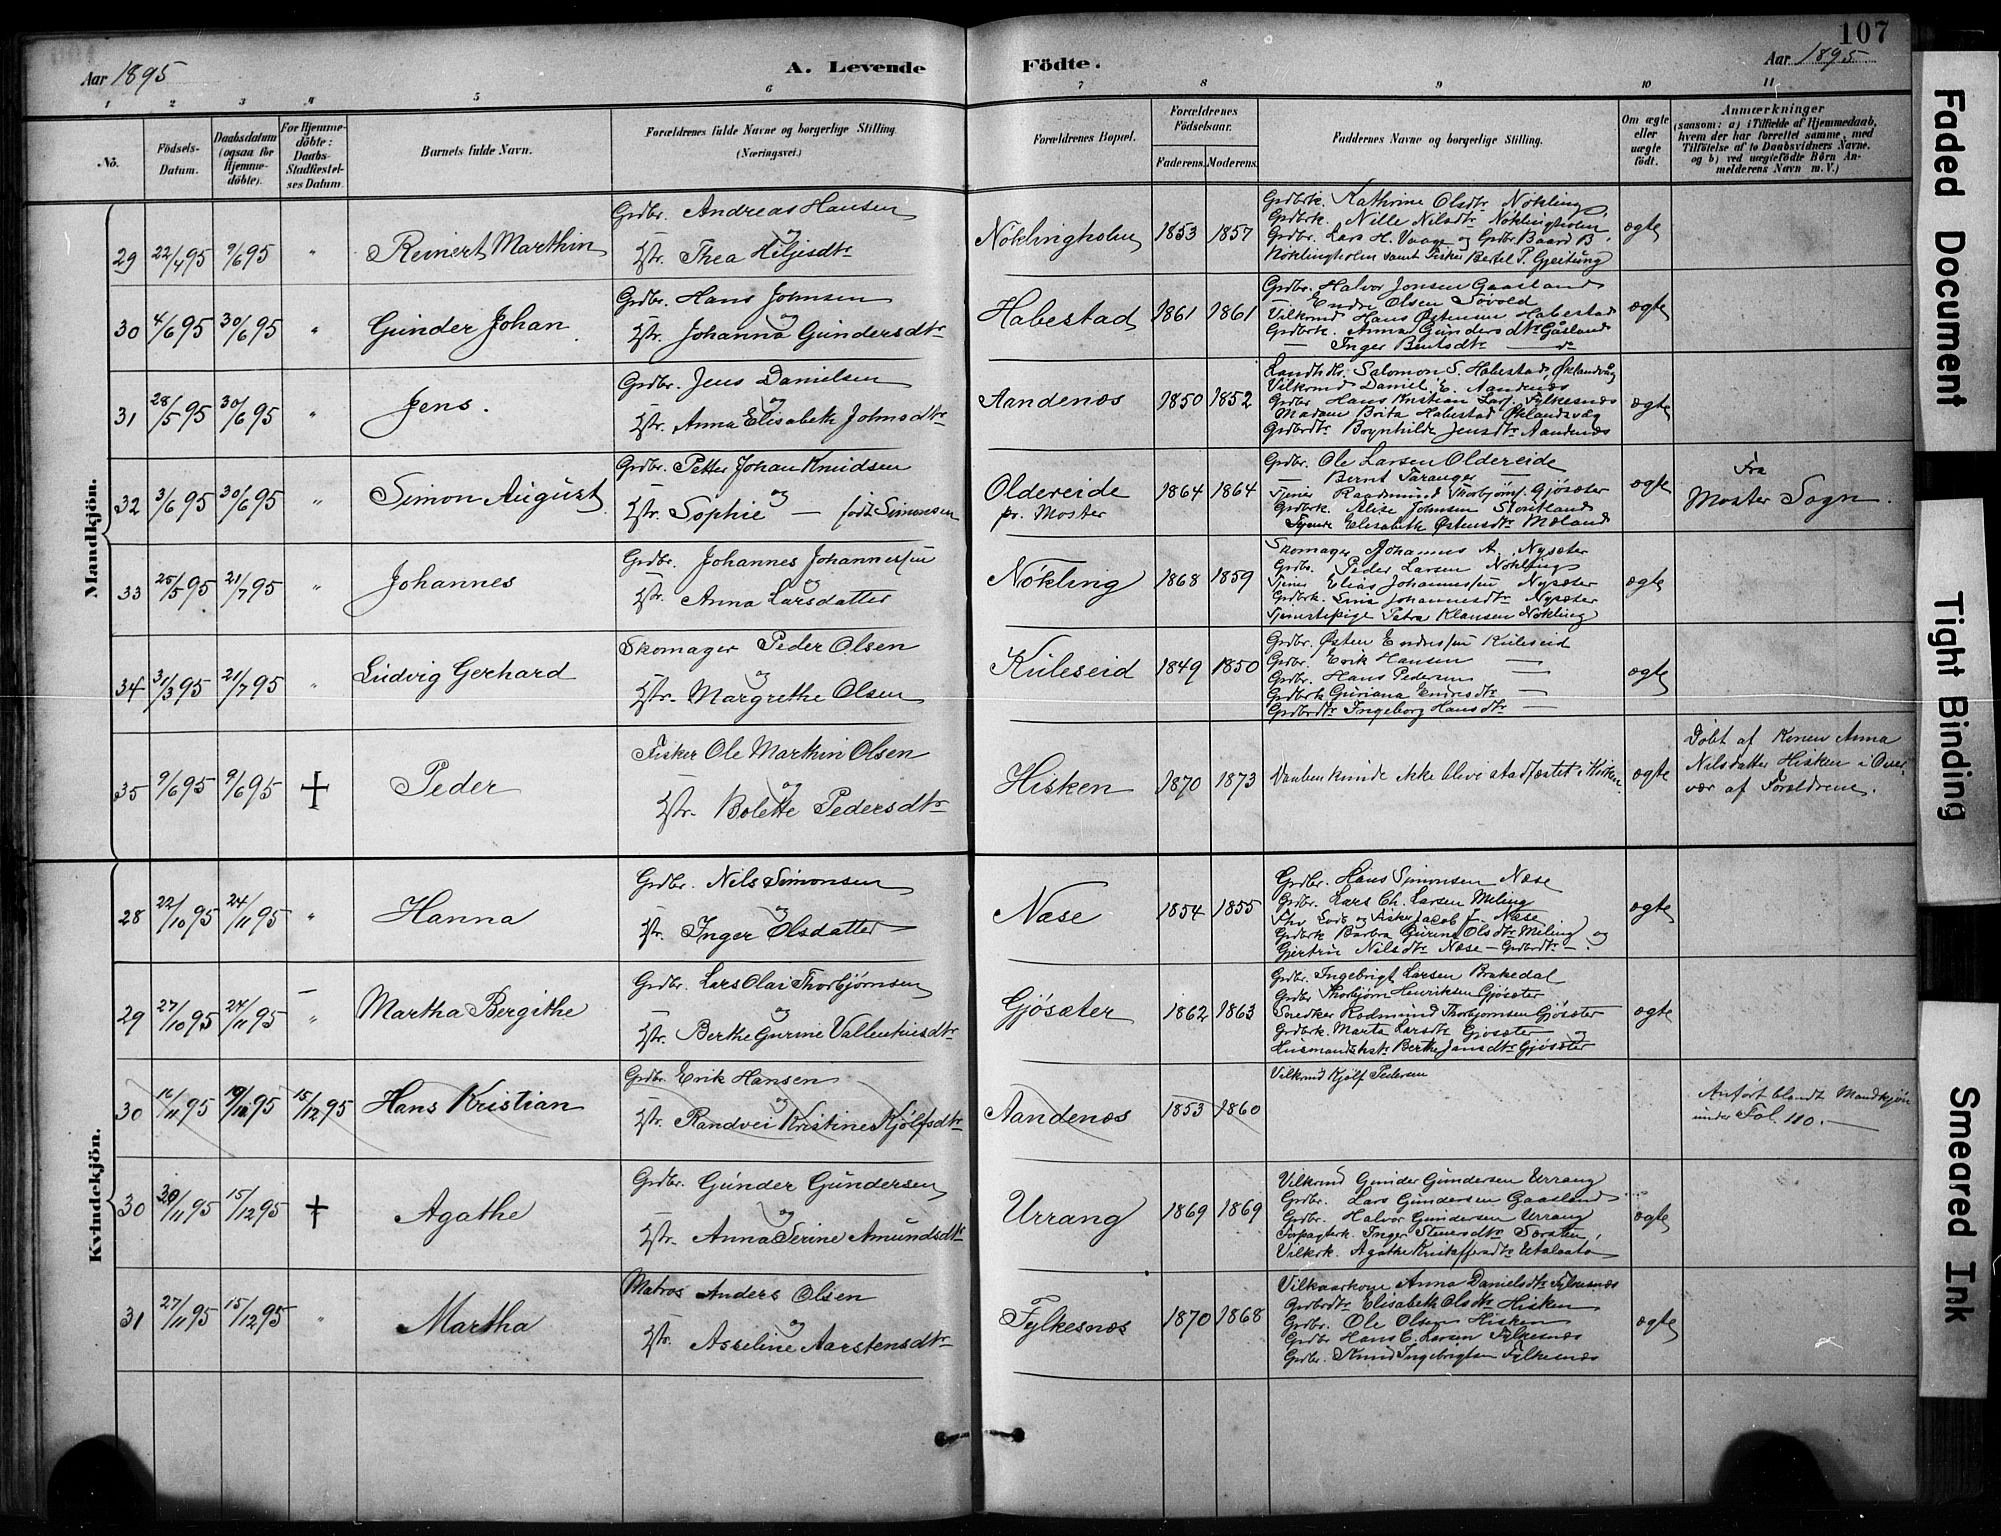 107
Aar 1895
A. Levende
Födte.
Aar 1895
1 2 3 4 5 6 7 8 9 10 11
No.
Födsels-Datum.
Daabsdatum (ogsaa for Hjemme-döbte).
For Hjemme-döbte: Daabs-Stadfæstel-ses Datum
Barnets fulde Navn.
Forældrenes fulde Navne og borgerlige Stilling (Næringsvei.)
Forældrenes Bopæl.
Forældrenes Födselsaar.
Faderens. Moderens.
Faddernes Navne og borgerlige Stilling.
Om ægte eller uægte födt.
Anmærkninger
(saasom: a) i Tilfælde af Hjemmedaab, hvem der har forrettet samme, med Tilföielse af to Daabsvidners Navne, og b) ved uægtefödte Börn An-melderens Navn m. V.)
Mandkjön.
29 22/4 95 9/6 95 " Reinert Marthin
Grdbr. Andreas Hansen
og
Hstr. Thea Hiljesdtr
Nöklingholm 1853 1857
Grdbrk. Kathrine Olsdtr Nökling
Grdbrk. Nille Nilsdtr Nöklingholm
Grdbr. Lars H. Vaage og Grdbr Baard B.
Nöklingholm samt Fisker Bertel P. Gjeitung
ægte
30 4/6 95 30/6 95 " Gunder Johan
Grdbr. Hans Johnsen
og
Hstr. Johanna Gundersdtr
Habestad 1861 1861
Grdbr. Halvor Jonsen Gaasland
Endre Olsen Sövold
Vilkrmd Hans Østensen Habestad
Grdbrk. Anna Gundersdtr Gåsland
— Inger Bentsdtr — do
ægte
31 28/5 95 30/6 95 " Jens.
Grdbr. Jens Danielsen
og
Hstr. Anna Elisabeth Johnsdtr
Aandenæs 1850 1852
Landhdlr. Salomon S. Habestad, Øklandvåg
Vilkrmd Daniel E. Aandenæs
Grdbr Hans Kristian Lars. Fylkesnæs
Madam Brita Habestad Øklandsvåg
Grdbrdtr Boynhilde Jensdtr Aandenæs
ægte
32 3/6 95 30/6 95 " Simon August
Grdbr. Petter Johan Knudsen
og
Hstr. Sophie — født Simonsen
Oldereide
pr. Moster
1864 1864
Grdbr. Ole Larsen Oldereide
— Bernt Taranger —
Tjener Raadmund Thorbjørns. Gjösæter
Grdbrk. Alise Johnsen Stoutland
Tjende Elisabeth Østensdtr Mæland
ægte
Fra
Moster Sogn.
33 25/5 95 21/7 95 " Johannes
Grdbr. Johannes Johannessen
og
Hstr. Anna Larsdatter
Nökling 1868 1859
Skomager Johannes A. Nysæter
Grdbr. Peder Larsen Nökling
Tjener Elias Johannessen Nysæter
Grdbrk. Lina Johannesdtr Nysæter
Tjenestepige Petra Klausen Nökling
ægte
34 31/3 95 21/7 95 " Ludvig Gerhard
Skomager Peder Olsen
og
Hstr. Margrethe Olsen
Kuleseid 1849 1850
Grdbr. Østen Endressen Kuleseid
Grdbr. Erik Hansen —
Grdbr. Hans Pedersen —
Grdbrk Guriana Endresdtr —
Grdbrdtr Ingeborg Hansdtr —
ægte
35 9/6 95 9/6 95 + Peder
Fisker Ole Marthin Olsen
og
Hstr. Bolette Pedersdtr
Hisken 1870 1873
Daaben kunde ikke blive stadfæstet i Kirken.
ægte
Döbt af Konen Anna
Nilsdatter Hisken i Over-
vær af Forældrene.
Kvindekjön.
28 22/10 95 24/11 95 " Hanna
Grdbr. Nils Simonsen
og
Hstr. Inger Olsdatter
Næse 1854 1855
Grdbr. Hans Simonsen Næse
Grdbr. Lars Ch. Larsen Meling
Lods og Fisker Jacob J. Næse
Grdbrk Barbra Gurine Olsdtr Meling og
Gjertru Nilsdtr Næse — Grdbrdtr —
ægte
29 27/10 95 24/11 95 " Martha Bergithe
Grdbr. Lars Olai Thorbjørnsen
og
Hstr. Berthe Gurine Vallentinsdtr
Gjösæter 1862 1863
Grdbr. Ingebrigt Larsen Brakedal
Grdbr Thorbjørn Henriksen Gjösæter
Snedker Radmund Thorbjørnsen Gjösæter
Grdbrk. Marta Larsdtr Gjösæter og
Husmandshstr Berthe Jansdtr Gjösæter
ægte
30 16/11 95 15/12 95 Hans Kristian
Grdbr. Erik Hansen
og
Hstr. Randvei Kristine Kjölfsdtr
Aandenæs 1853 1860
Vilkrmd Kjölf Pedersen
Anfört blandt Mandkjön
under Fol. 110. —
30 30/11 95 15/12 95 + Agathe
Grdbr. Gunder Gundersen
og
Hstr. Anna Serine Amundsdtr
Urrang 1869 1869
Vilkrmd Gunder Gundersen Urrang
Grdbr. Lars Gundersen Gaasland
Grdbr. Halvor Gundersen Urrang
Forpagterk. Inger Stenersdtr Sorsten
Vilkrk. Agathe Kristoffersdtr
ægte
31 27/11 95 15/12 95 " Martha
Matros Anders Olsen
og
Hstr. Asseline Aarstensdtr
Fylkesnæs 1870 1868
Vilkaarkone Anna Danielsdtr Fylkesnæs
Grdbrdtr Elisabeth Olsdtr Hisken
Grdbr. Ole Olsen Hisken
Grdbr Hans C. Larsen Fylkesnæs
Grdbr. Knud Ingebrigtsen Fylkesnæs
ægte
Faded Document
Tight Binding
Smeared Ink